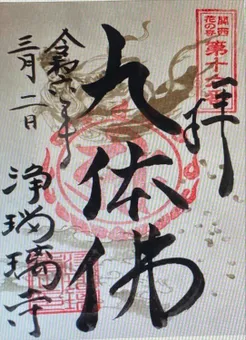 関西
花の寺
第十六番
奉拝
九体佛
令和六年
三月二日
浄瑠璃寺